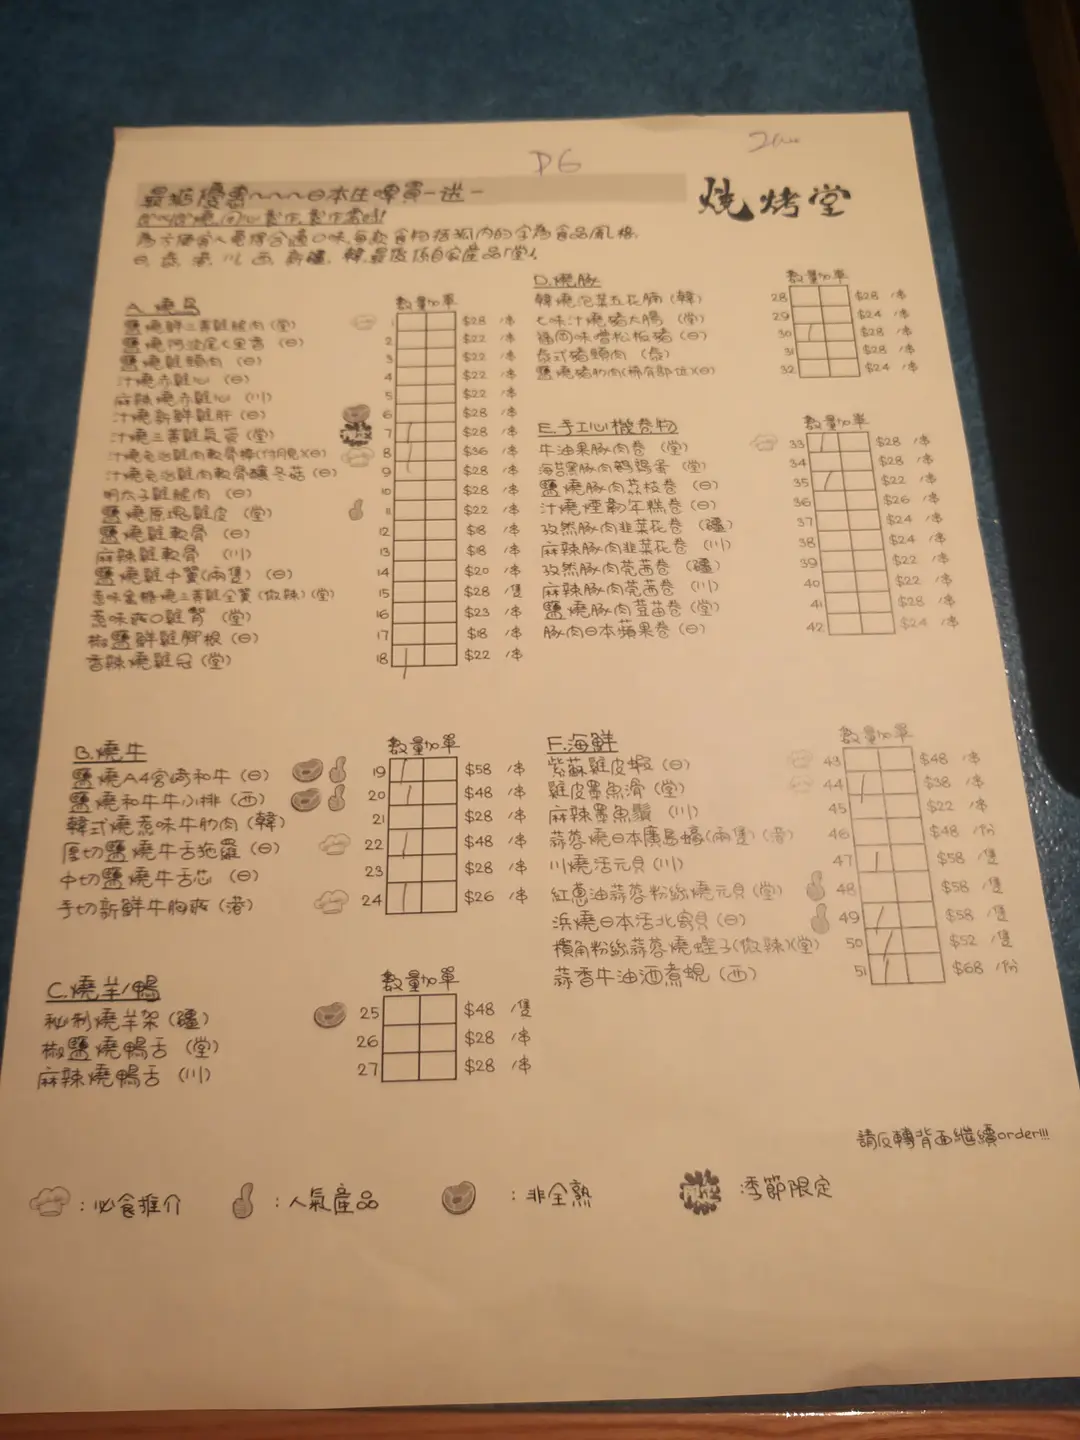 P6
燒烤堂
最抵優惠~~~日本生啤買一送一
為方便客人選擇合適口味,每款食物括弧內的字為食品風格,
日,泰,港,川,西,新疆,韓,最後係自家產品「堂」!
A.燒鳥 數量加單
鹽燒鮮三黃雞腿肉 (堂) 1 $28 /串
鹽燒阿波尾七里香 (日) 2 $22 /串
鹽燒雞頸肉 (日) 3 $22 /串
汁燒赤雞心 (日) 4 $22 /串
麻辣燒赤雞心 (川) 5 $22 /串
汁燒新鮮雞肝 (日) 6 $28 /串
汁燒三黃雞氣管 (堂) 7 $28 /串
汁燒免治雞肉軟骨棒(付月見)(日) 8 $36 /串
汁燒免治雞肉軟骨釀冬菇 (日) 9 $28 /串
明太子雞腿肉 (日) 10 $28 /串
鹽燒原塊雞皮 (堂) 11 $22 /串
鹽燒雞軟骨 (日) 12 $18 /串
麻辣雞軟骨 (川) 13 $18 /串
鹽燒雞中翼(兩隻) (日) 14 $20 /串
惹味蜜糖燒三黃雞全翼 (微辣) (堂) 15 $28 /隻
惹味爽口雞腎 (堂) 16 $23 /串
椒鹽鮮雞腳根 (日) 17 $18 /串
香辣燒雞冠 (堂) 18 $22 /串
B.燒牛 數量加單
鹽燒A4宮崎和牛 (日) 19 $58 /串
鹽燒和牛牛小排 (西) 20 $48 /串
韓式燒惹味牛肋肉 (韓) 21 $28 /串
厚切鹽燒牛舌拖羅 (日) 22 $48 /串
中切鹽燒牛舌芯 (日) 23 $28 /串
手切新鮮牛胸爽 (港) 24 $26 /串
C.燒羊/鴨 數量加單
秘制燒羊架 (疆) 25 $48 /隻
椒鹽燒鴨舌 (堂) 26 $28 /串
麻辣燒鴨舌 (川) 27 $28 /串
D.燒豚 數量加單
韓燒泡菜五花腩 (韓) 28 $28 /串
七味汁燒豬大腸 (堂) 29 $24 /串
福岡味噌松板豬 (日) 30 $28 /串
泰式豬頸肉 (泰) 31 $28 /串
鹽燒豬肋肉(稀有部位)(日) 32 $24 /串
E.手工心機卷物 數量加單
牛油果豚肉卷 (堂) 33 $28 /串
海苔黑豚肉鵪鶉蛋 (堂) 34 $28 /串
鹽燒豚肉荔枝卷 (日) 35 $22 /串
汁燒煙韌年糕卷 (日) 36 $26 /串
孜然豚肉韭菜花卷 (疆) 37 $24 /串
麻辣豚肉韭菜花卷 (川) 38 $24 /串
孜然豚肉芫茜卷 (疆) 39 $22 /串
麻辣豚肉芫茜卷 (川) 40 $22 /串
鹽燒豚肉荳苗卷 (堂) 41 $28 /串
豚肉日本蘋果卷 (日) 42 $24 /串
F.海鮮 數量加單
紫蘇雞皮蝦 (日) 43 $48 /串
雞皮墨魚滑 (堂) 44 $38 /串
麻辣墨魚鬚 (川) 45 $22 /串
蒜蓉燒日本廣島蠔(兩隻) (港) 46 $48 /份
川燒活元貝 (川) 47 $58 /隻
紅蔥油蒜蓉粉絲燒元貝 (堂) 48 $58 /隻
浜燒日本活北寄貝 (日) 49 $58 /隻
欖角粉絲蒜蓉燒蟶子(微辣)(堂) 50 $52 /隻
蒜香牛油酒煮蜆 (西) 51 $68 /份
請反轉背面繼續order!!!
:必食推介 :人氣產品 :非全熟 :季節限定